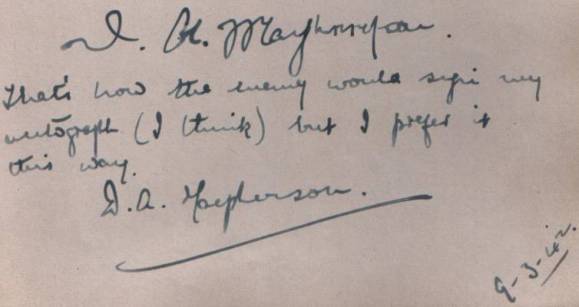 That's how the enemy would sign my
autograph (I think) but I prefer it
this way.
D.A. Mcpherson.
9-3-42.